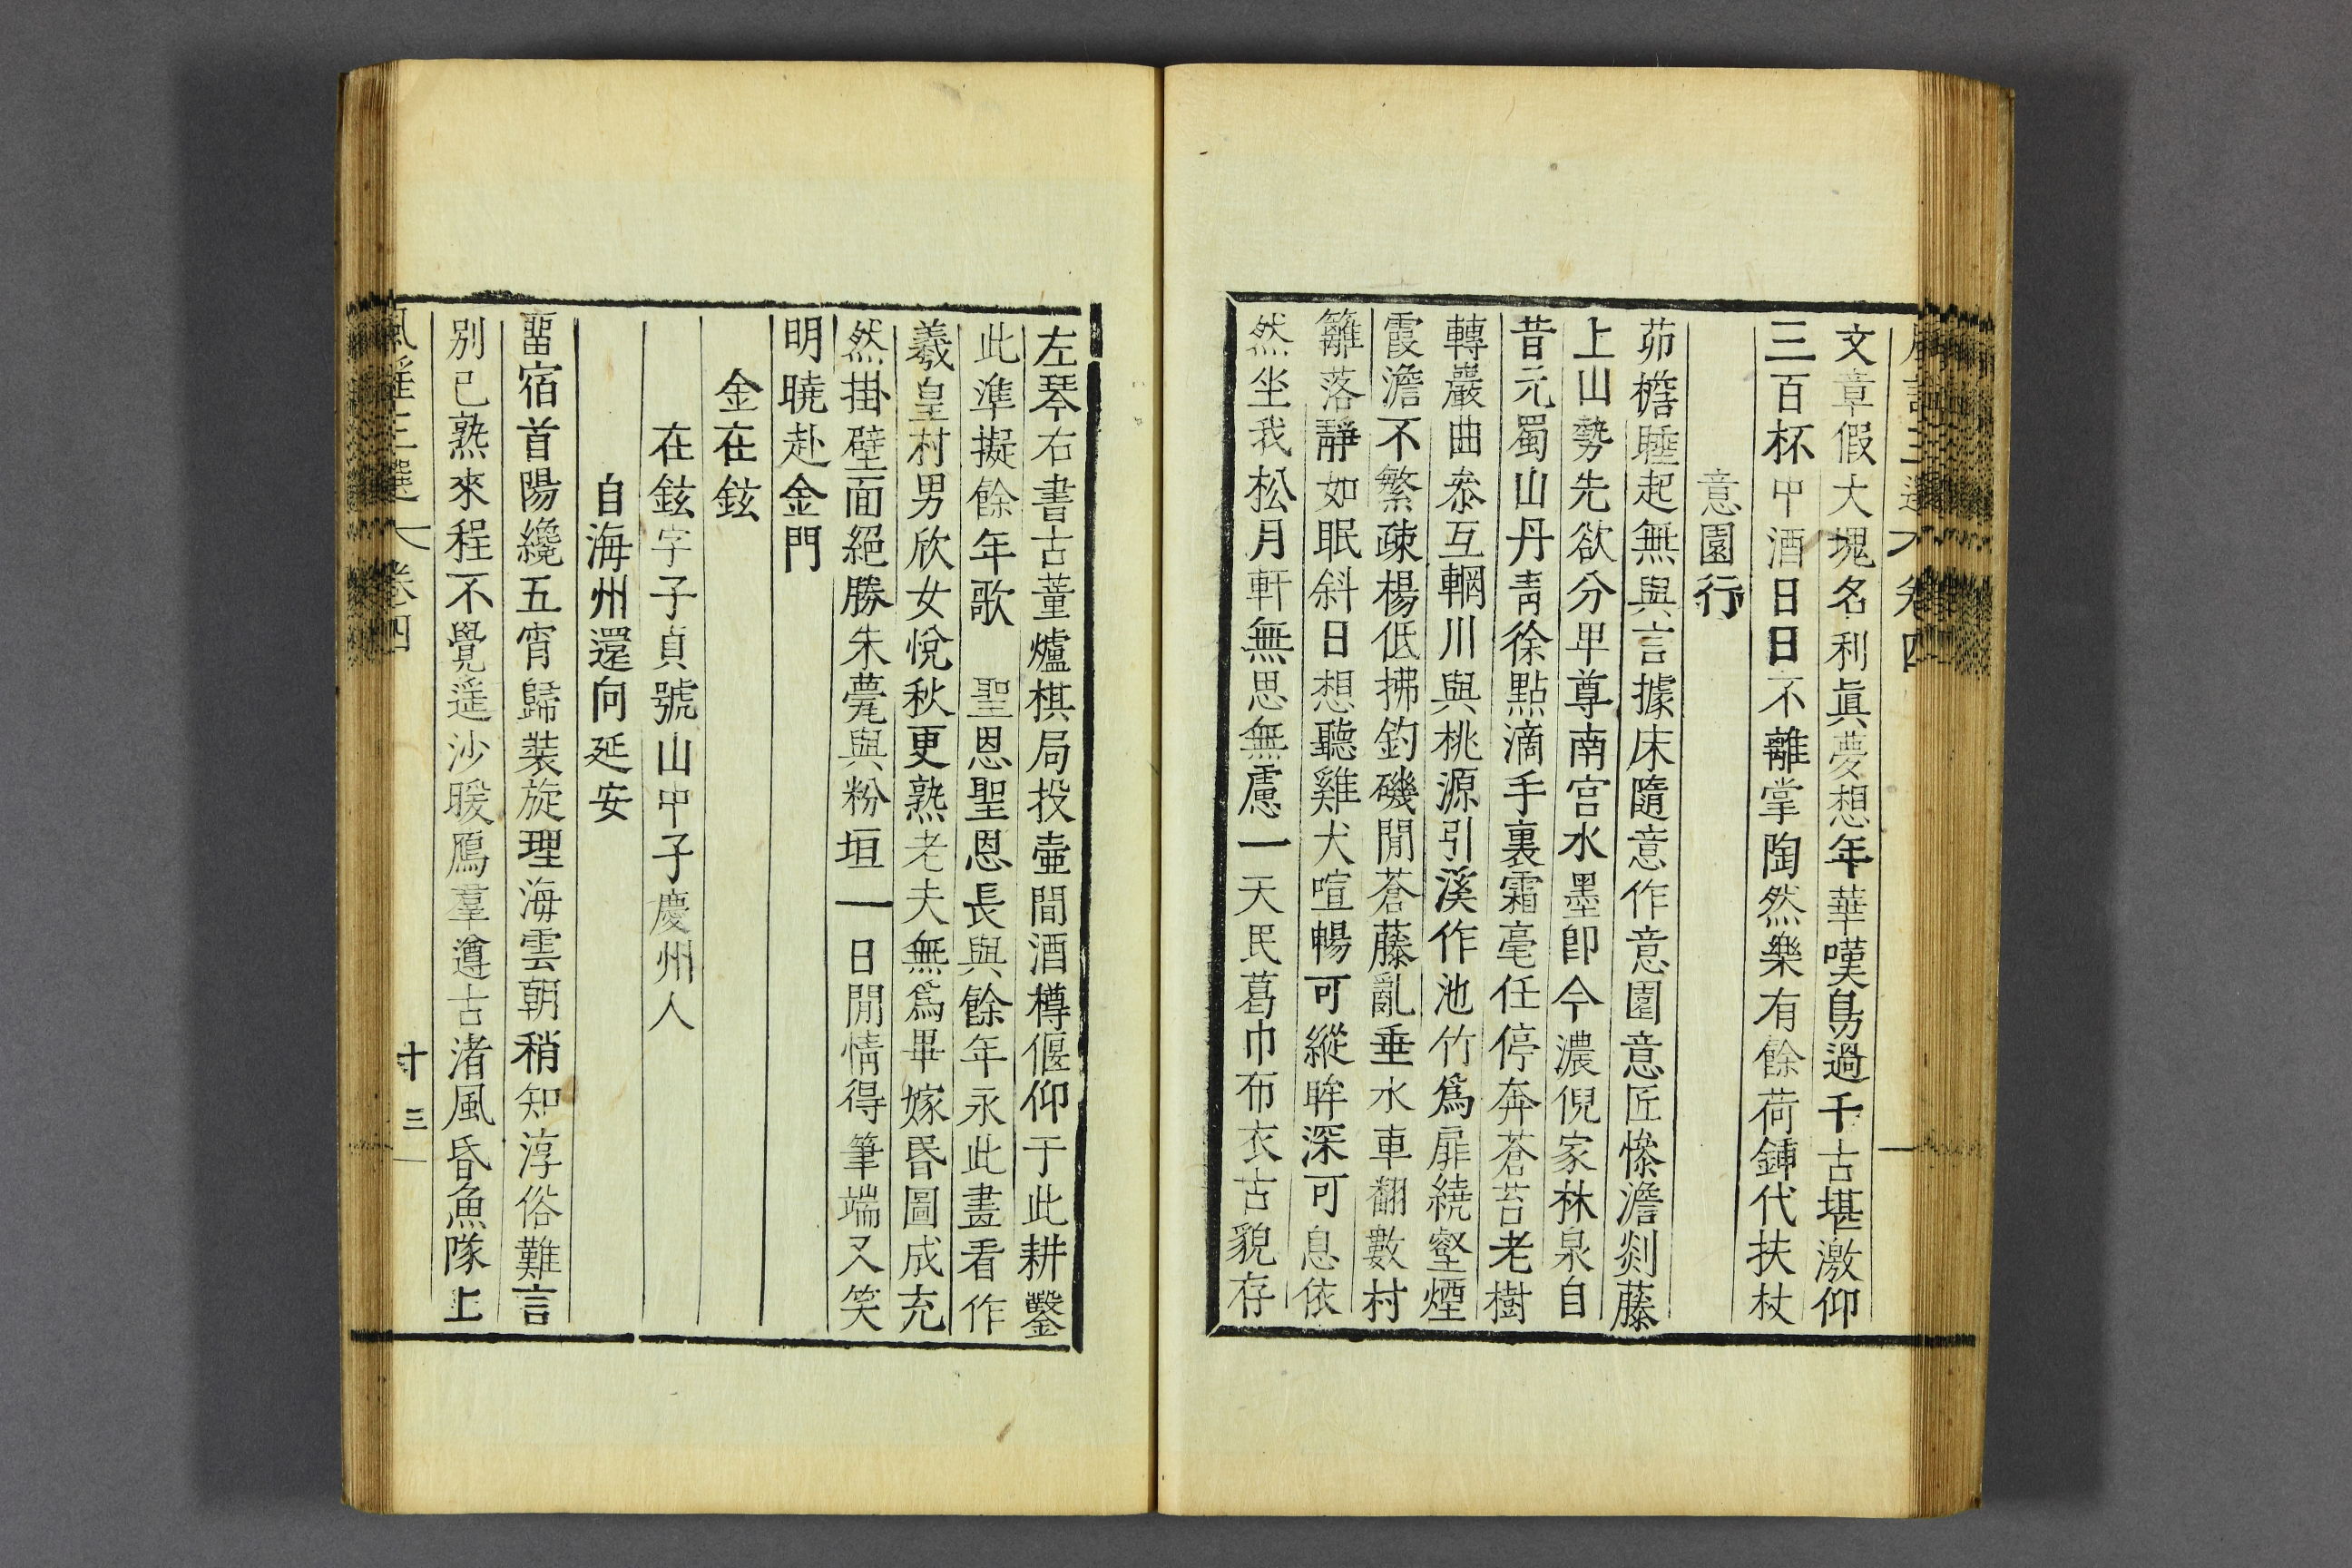 風謠三選 卷四
文章假大塊名利眞夢想年華嘆鳥過千古堪激仰
三百杯中酒日日不離掌陶然樂有餘荷鍤代扶杖
意園行
茆檐睡起無與言據床隨意作意園意匠慘澹剡藤
上山勢先欲分卑尊南宮水墨卽今濃倪家林泉自
昔元蜀山丹靑徐點滴手裏霜毫任停奔蒼苔老樹
轉巖曲叅互輞川與桃源引溪作池竹爲扉繞壑煙
霞澹不繁疎楊低拂釣磯閒蒼藤亂垂水車翻數村
籬落靜如眠斜日想聽雞犬喧暢可縱眸深可息依
然坐我松月軒無思無慮一天民葛巾布衣古貌存
左琴右書古董爐棋局投壷間酒樽偃仰于此耕鑿
此準擬餘年歌 聖恩聖恩長與餘年永此畫看作
羲皇村男欣女悅秋更熟老夫無爲畢嫁昏圖成充
然掛壁面絕勝朱甍與粉垣一日閒情得筆端又笑
明曉赴金門
金在鉉
在鉉字子貞號山中子慶州人
自海州還向延安
畱宿首陽纔五宵歸裝旋理海雲朝稍知淳俗難言
別已熟來程不覺遥沙暖鴈羣遵古渚風昏魚隊上
風謠三選 卷四
十三